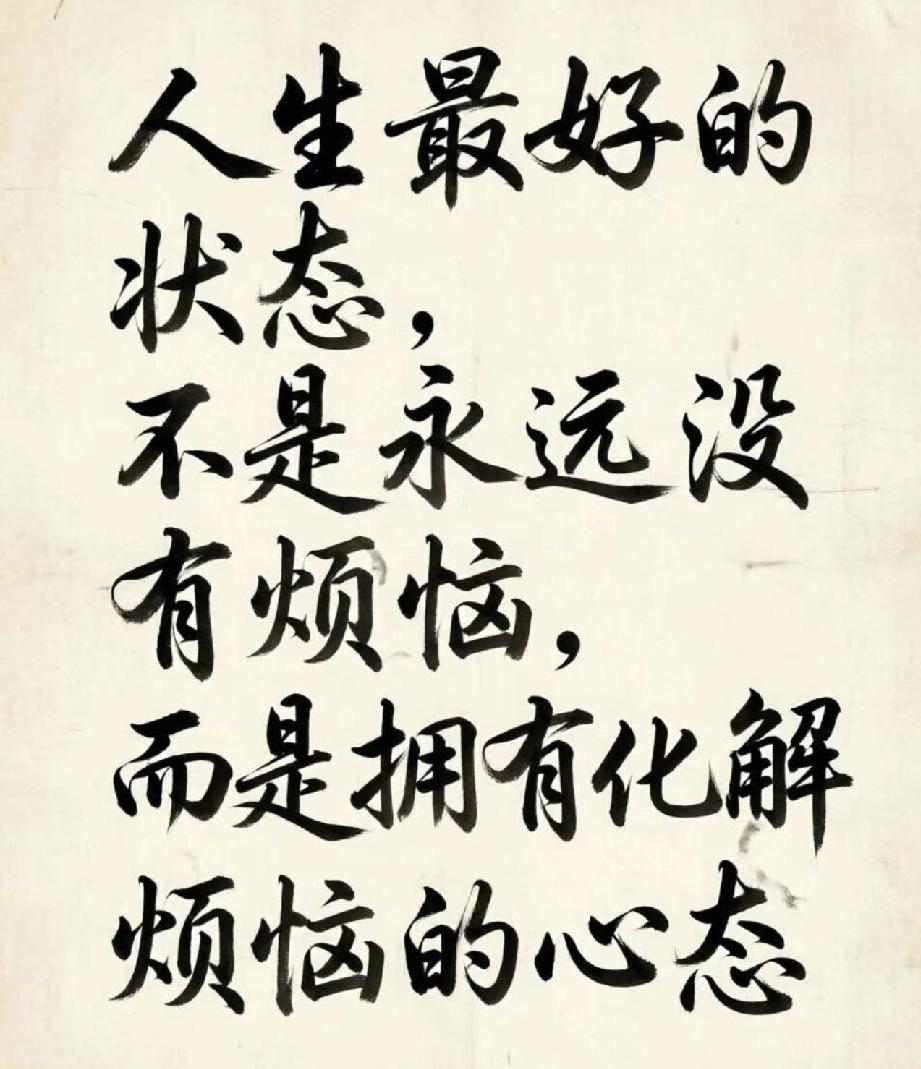 人生最好的
状态，
不是永远没
有烦恼，
而是拥有化解
烦恼的心态